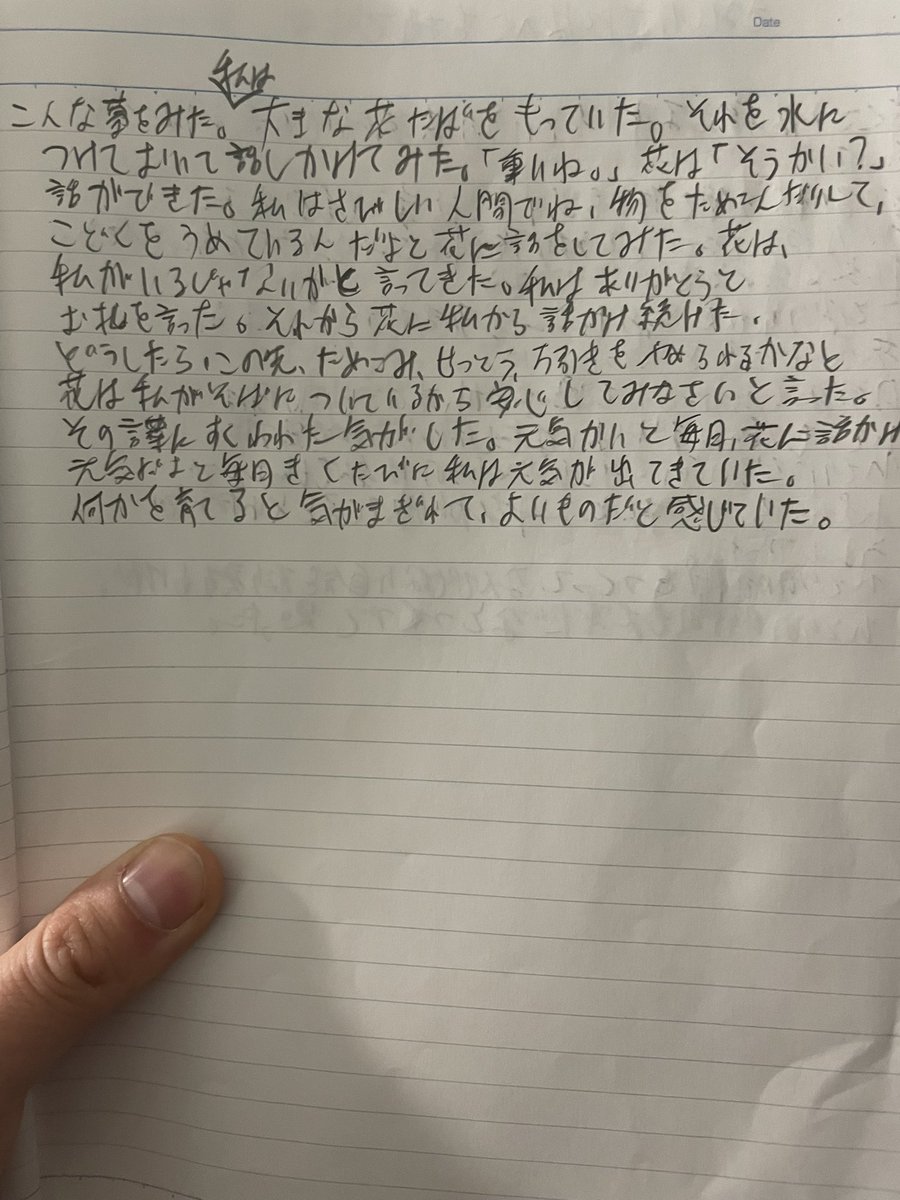 Date
こんな夢をみた。私は大きな花たばをもっていた。それを水に
つけておいて話しかけてみた。「重いね。」花は「そうかい?」
話ができた。私はさびしい人間でね、物をためこんだりして、
こどくをうめているんだよと花に話をしてみた。花は、
私がいるじゃないかと言ってきた。私はありがとうと
お礼を言った。それから花に私から話かけ続けた。
どうしたら、この先、ためこみ、せっとう、万引きをやめられるかなと
花は私がそばについているから安心してみなさいと言った。
その言葉にすくわれた気がした。元気かいと毎日、花に話かけ
元気だよと毎日きくたびに私は元気が出てきていた。
何かを育てると気がまぎれて、よいものだと感じていた。